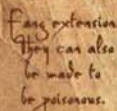 Fang extension
they can also
be made to
be poisonous.